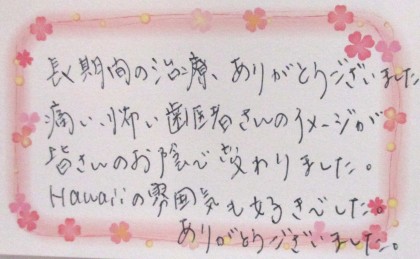 長期間の治療、ありがとうございました
痛い、怖い歯医者さんのイメージが
皆さんのお陰で変わりました。
Hawaiiの雰囲気も好きでした。
ありがとうございました。